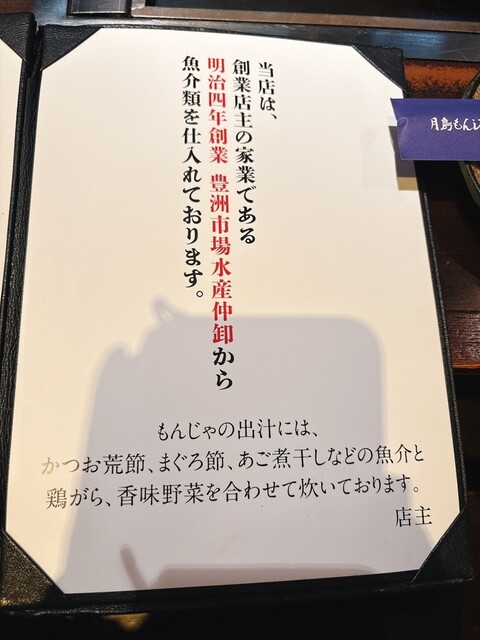 当店は、
創業店主の家業である
明治四年創業 豊洲市場水産仲卸から
魚介類を仕入れております。
もんじゃの出汁には、
かつお荒節、まぐろ節、あご煮干しなどの魚介と
鶏がら、香味野菜を合わせて炊いております。
店主
月島もんじ